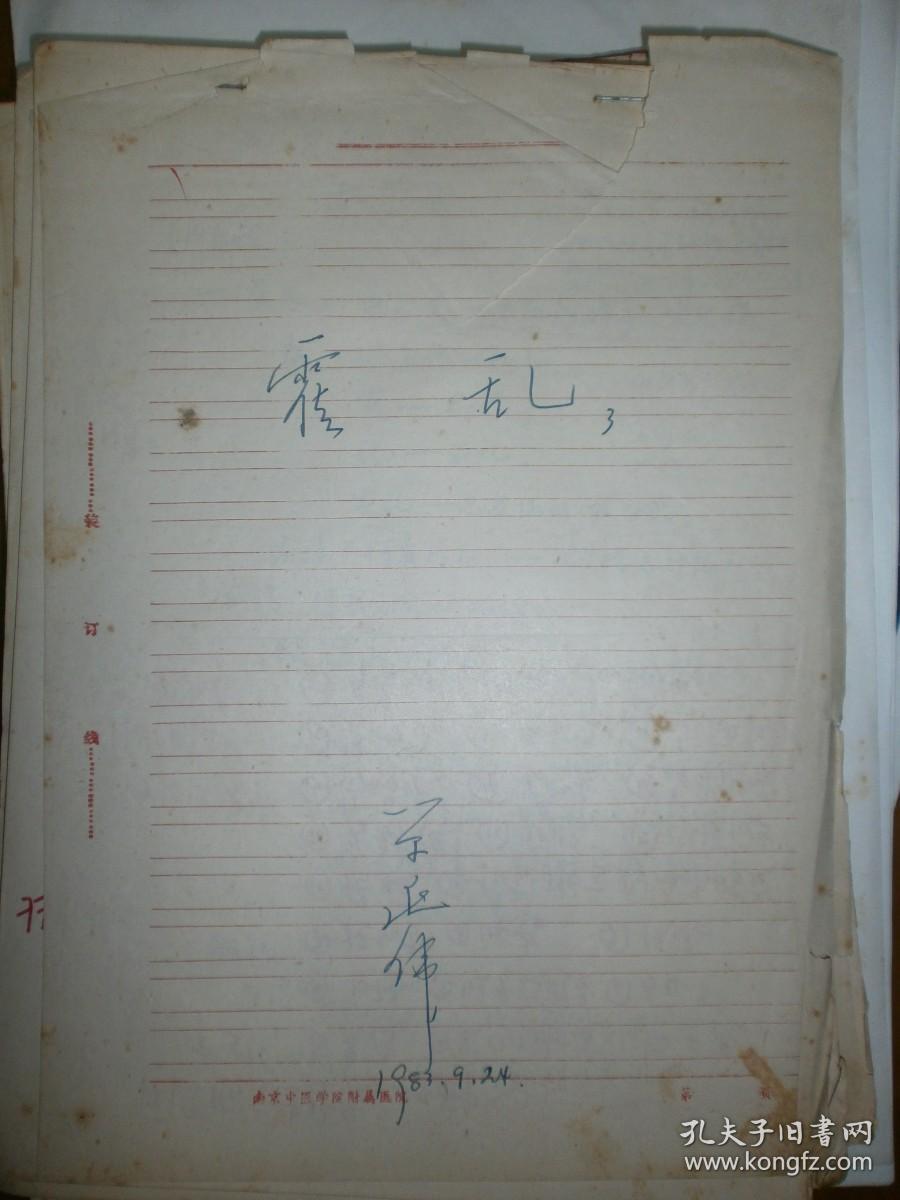 霍 乱 3
装
订
线
伟
1983.9.24.
南京中医学院附属医院
第 页
孔夫子旧书网
www.kongfz.com